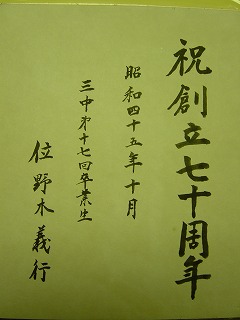 祝創立七十周年
昭和四十五年十月
三中第十七回卒業生
位野木義行